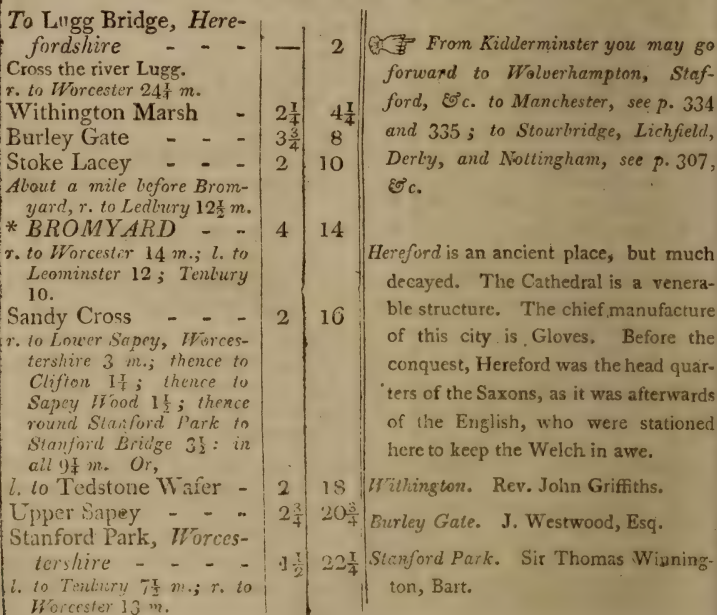 To Lugg Bridge, Here-
fordshire - - - — 2
Cross the river Lugg.
r. to Worcester 24¼ m.
Withington Marsh - 2¼ 4¼
Burley Gate - - - 3¾ 8
Stoke Lacey - - - 2 10
About a mile before Brom-
yard, r. to Ledbury 12½ m.
* BROMYARD - - 4 14
r. to Worcester 14 m.; l. to
Leominster 12; Tenbury
10.
Sandy Cross - - - 2 16
r. to Lower Sapey, Worces-
tershire 3 m.; thence to
Clifton 1½; thence to
Sapey Wood 1½; thence
round Stanford Park to
Stanford Bridge 3½: in
all 9½ m. Or,
l. to Tedstone Wafer - 2 18
Upper Sapey - - - 2¾ 20¾
Stanford Park, Worces-
tershire - - - - 1½ 22¼
l. to Tenbury 7½ m.; r. to
Worcester 13 m.
☞ From Kidderminster you may go
forward to Wolverhampton, Staf-
ford, &c. to Manchester, see p. 334
and 335; to Stourbridge, Lichfield,
Derby, and Nottingham, see p. 307,
&c.
Hereford is an ancient place, but much
decayed. The Cathedral is a venera-
ble structure. The chief manufacture
of this city is Gloves. Before the
conquest, Hereford was the head quar-
ters of the Saxons, as it was afterwards
of the English, who were stationed
here to keep the Welch in awe.
Withington. Rev. John Griffiths.
Burley Gate. J. Westwood, Esq.
Stanford Park. Sir Thomas Winning-
ton, Bart.